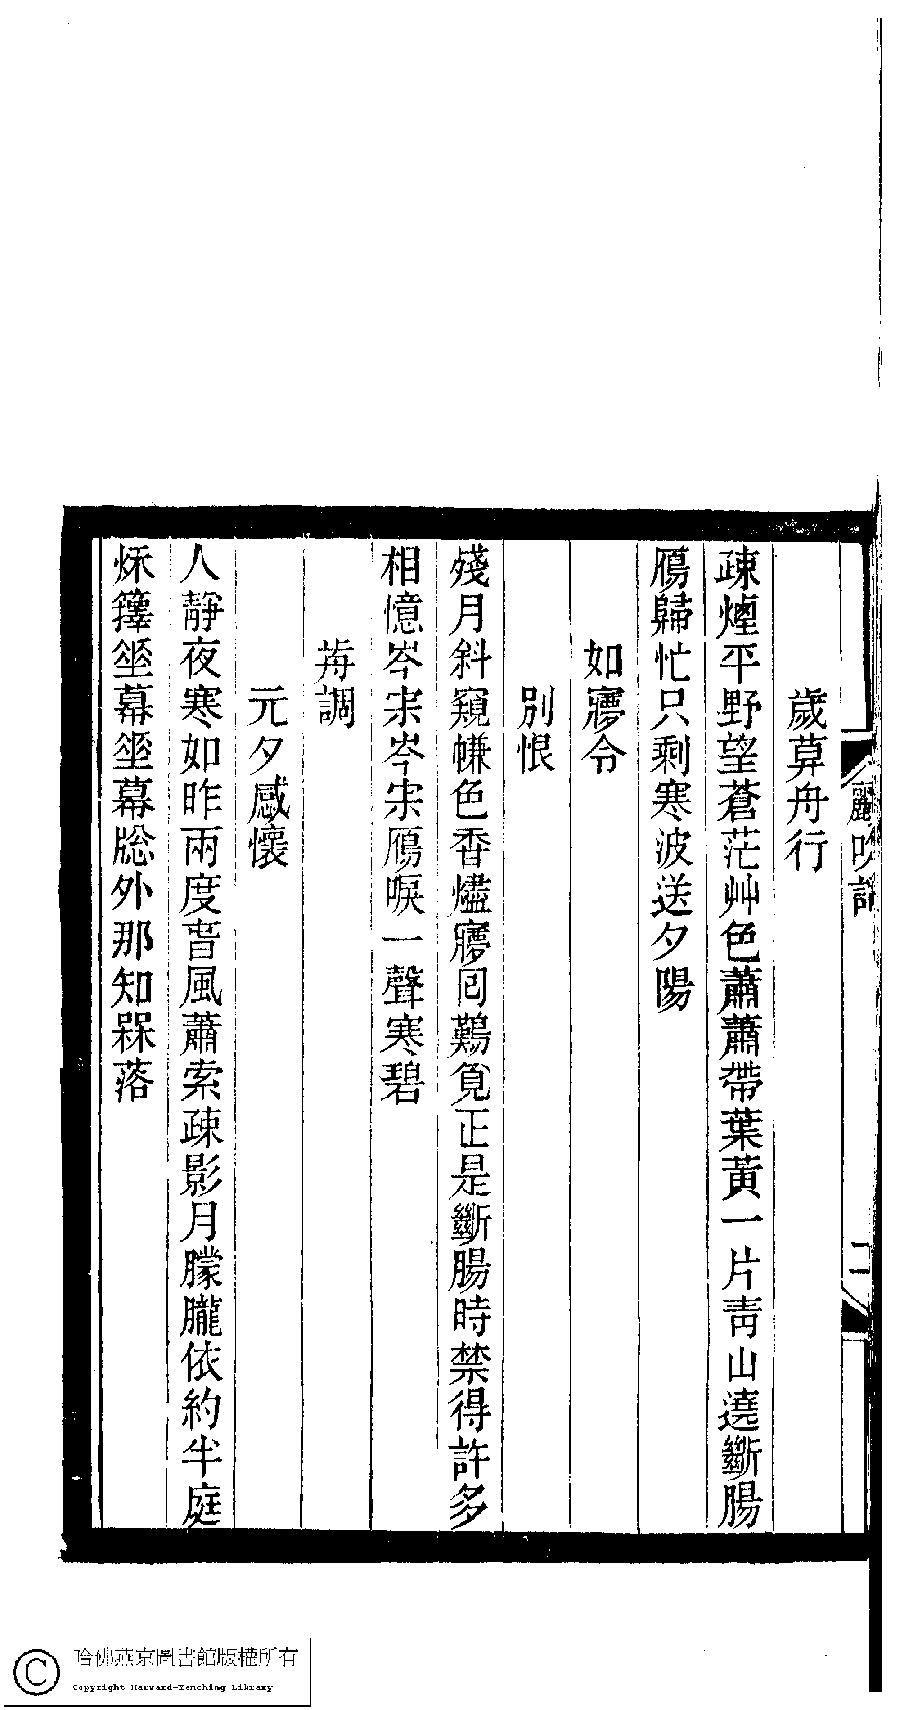 歲暮舟行
疎煙平野望蒼茫艸色蕭蕭帶葉黃一片靑山遶斷腸
鴈歸忙只剩寒波送夕陽
如寢令
別恨
殘月斜窺㡘色香燼寢回難覓正是斷腸時禁得許多
相憶岑寂岑寂鴈唳一聲寒碧
苒調
元夕感懷
人靜夜寒如昨兩度春風蕭索疎影月朦朧依約半庭
秌籜垂幕垂幕牕外那知槑落
二
哈佛燕京圖書館版權所有
Copyright Harvard-Yenching Library